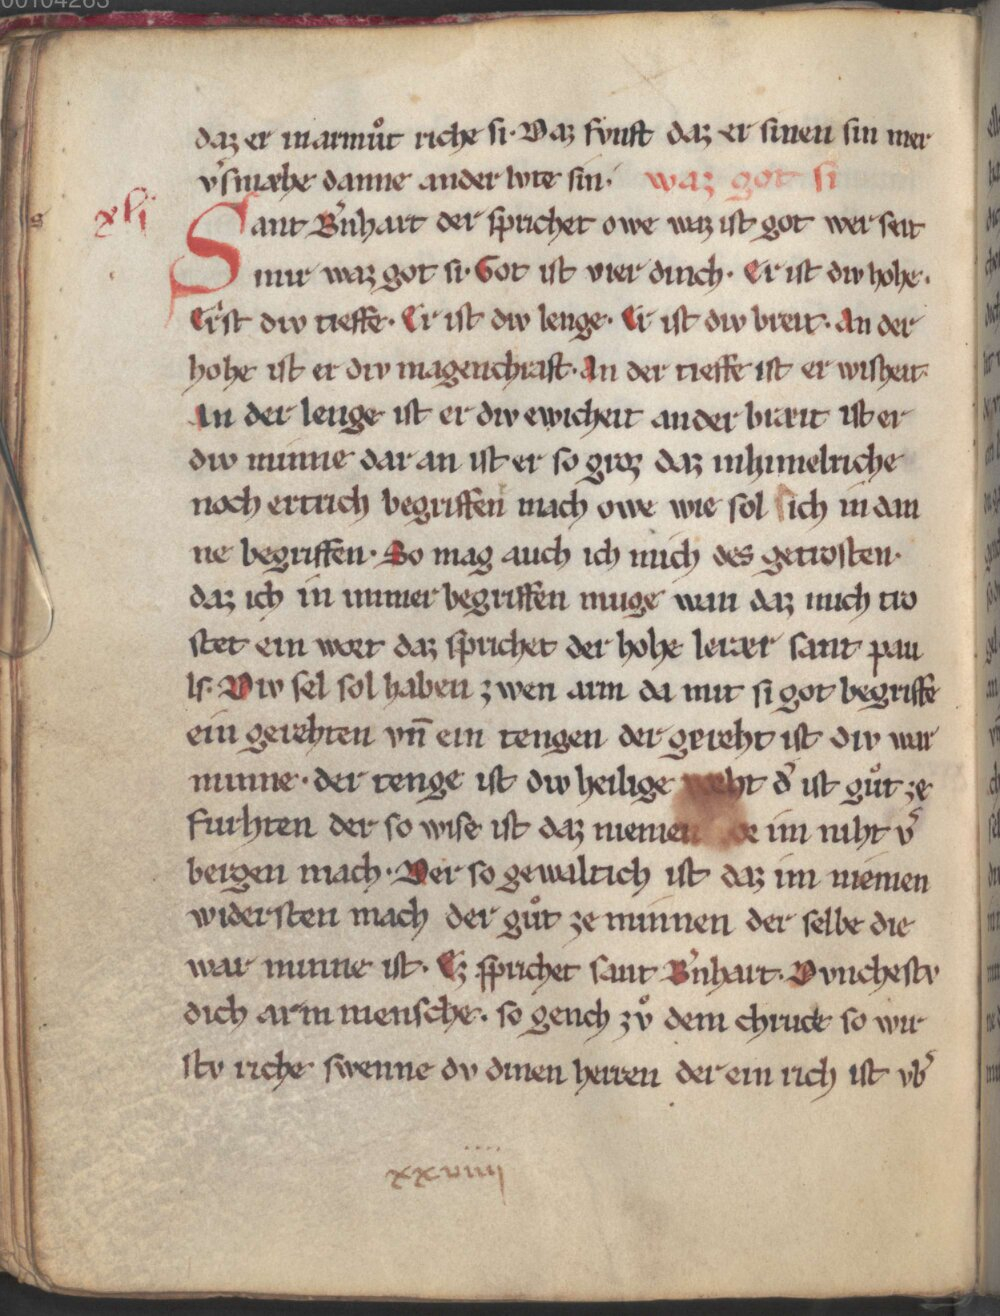 daz er in armuͦt riche si· Daz fvnft daz er sinen sin mer
v̉smæhe danne ander lvte sin· waz got si
xli
Sant B̉nhart der sprichet owe waz ist got wer seit
mir waz got si· Got ist vier dinch· Er ist div hohe·
Er ist div tieffe· Er ist div lenge· Er ist div breit· An der
hohe ist er div magenchraft· An der tieffe ist er wisheit·
An der lenge ist er div ewicheit an der bræit ist er
div minne dar an ist er so groz daz in himelriche
noch ertrich begriffen mach owe wie sol ich in dan
ne begriffen· So mag auch ich mich des getrosten·
daz ich in immer begriffen muge wan daz mich tro
stet ein wort daz sprichet der hohe leræer sant pau
ls· Div sel sol haben zwen arm da mit si got begriffe
ein gerehten vn̄ ein tengen der gereht ist div war
minne· der tenge ist div heilige d̉ ist guͦt ze
furhten der so wise ist daz niemen im niht v̉
bergen mach· Der so gewaltich ist daz im niemen
widersten mach der guͦt ze minnen der selbe die
war minne ist· Ez sprichet sant B̉nhart· Dvnchestv
dich arm mensche· so gench zvͦ dem chrucE so wir
stv riche swenne dv dinen herren der ein rich ist vb̉
xxviiii